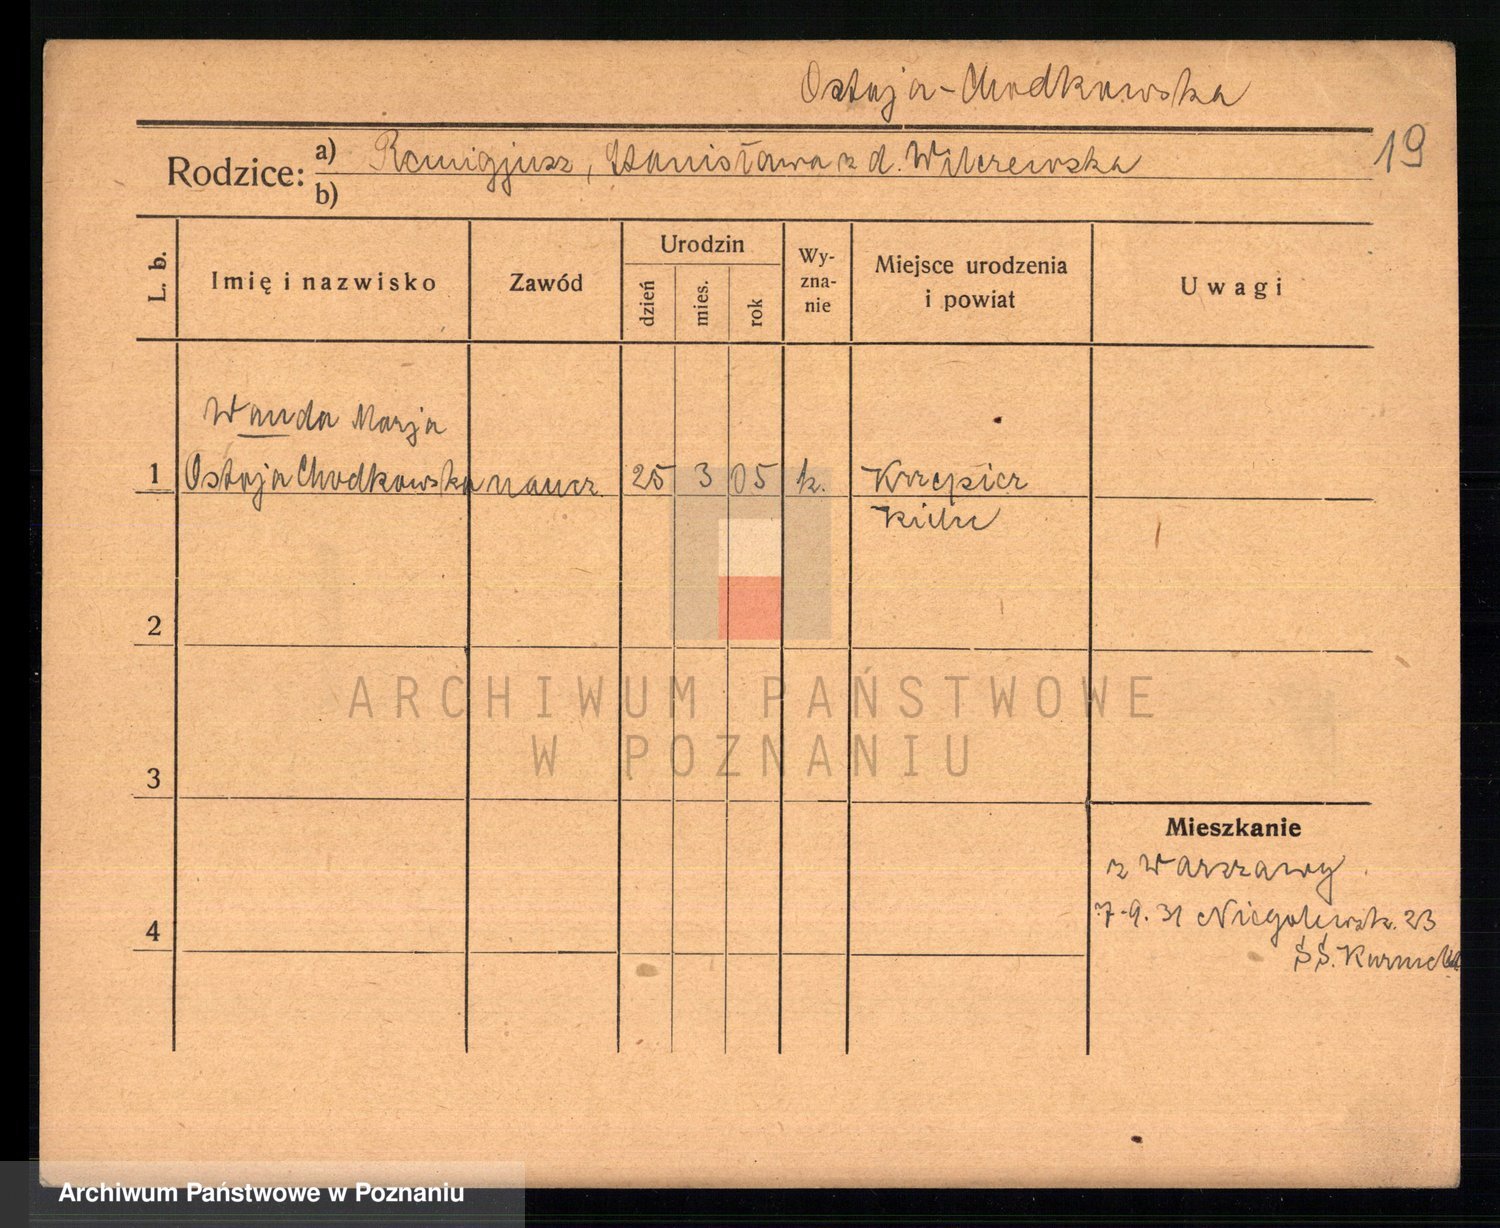 Ostoja-Chodkowska
19
Rodzice: a) Remigjusz, Stanisława z d. Wilczewska
b)
L. b. Imię i nazwisko Zawód Urodzin dzień mies. rok Wy-zna-nie Miejsce urodzenia i powiat Uwagi
Wanda Marja
1 Ostoja Chodkowska naucz. 25 3 05 k. Krzepice
Kielce
2
ARCHIWUM PAŃSTWOWE
W POZNANIU
3
Mieszkanie
z Warszawy
7-9.31 Niegolewsk. 23
4
SŚ.
Archiwum Państwowe w Poznaniu